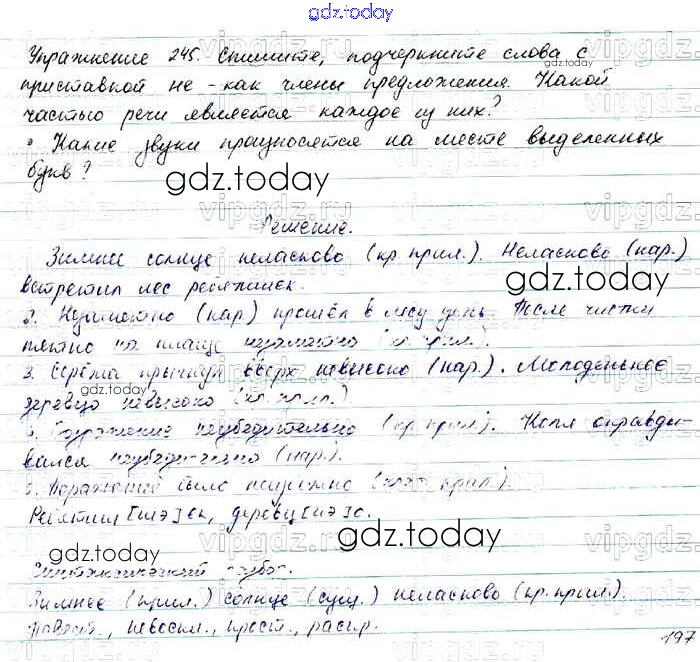 gdz.today
Упражнение 245. Спишите, подчеркните слова с
приставкой не - как члены предложения. Какой
частью речи является каждое из них?
• Какие звуки произносятся на месте выделенных
букв?
gdz.today
Решение.
Зимнее солнце неласково (кр. прил.). Неласково (нар.)
встретил лес ребятишек.
gdz.today
2. Незаметно (нар) прошёл в лесу день. После чистки
пятно на плаще незаметно (кр. прил.).
3. Серёжа прыгнул вверх невысоко (нар.). Молоденькое
gdz.today
деревцо невысоко (кр. прил.).
Возражение неубедительно (кр. прил.). Коля оправды-
вался неубедительно (нар.).
gdz.today
5. Поражение было
gdz.today
Зимнее (прил.) солнце (сущ.) неласково (кр. прил.).
повест., невоскл., прост., распр.
197